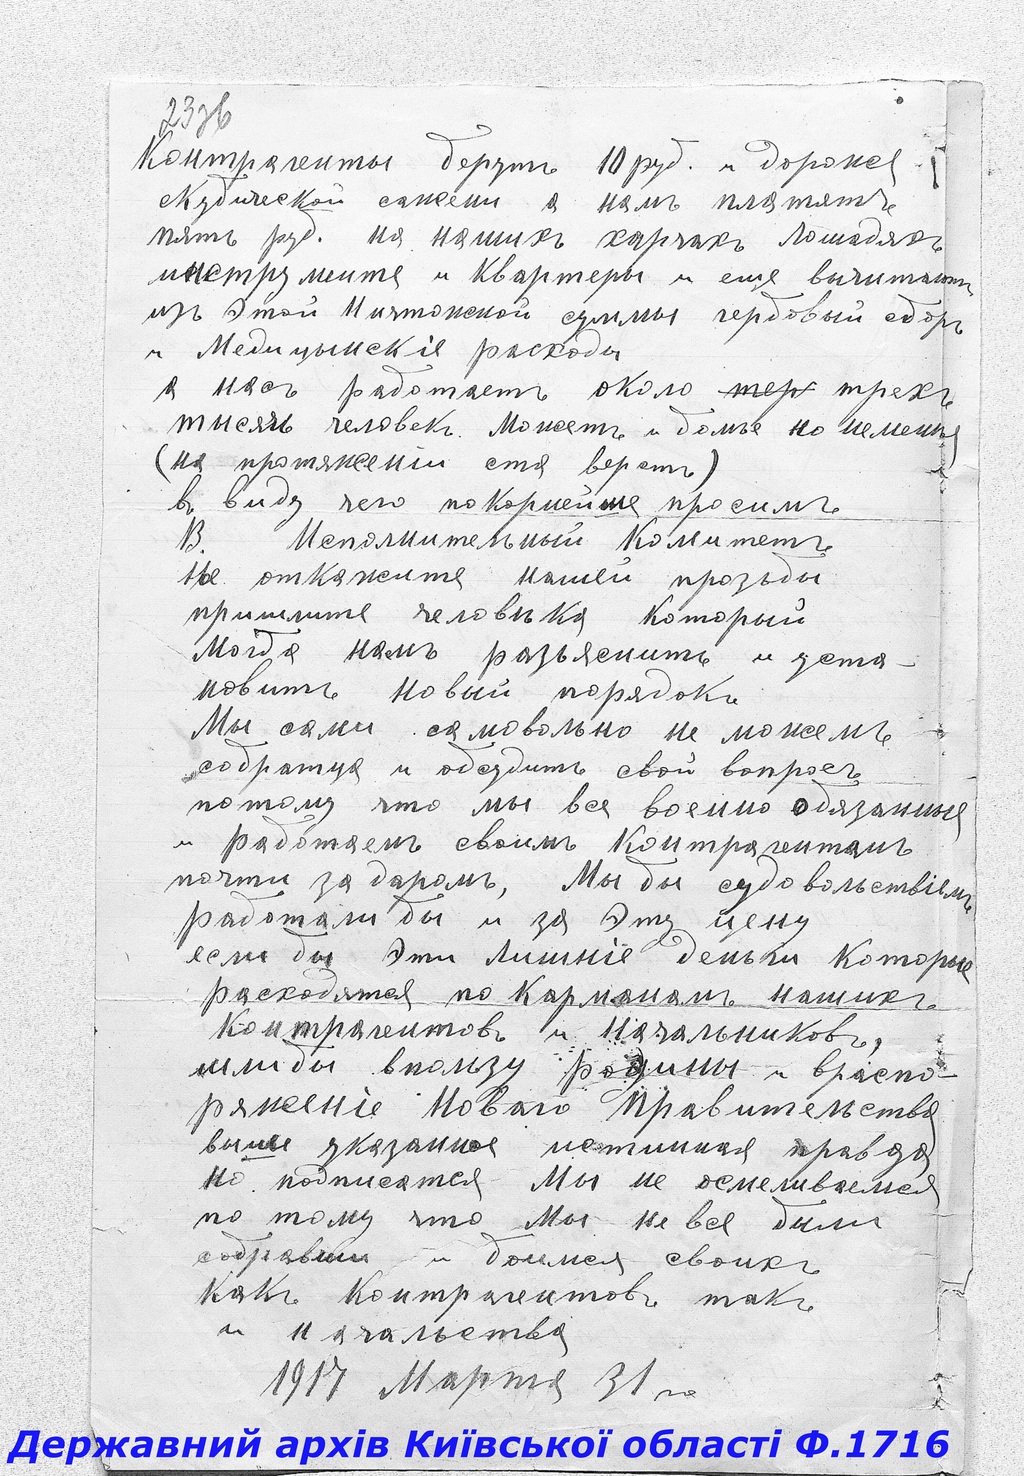 23зв
Контрагенты берутъ 10 руб. и дороже
с Кубической сажени а намъ платятъ
пять руб. на нашихъ харчахъ Лошадяхъ
инструменте и Квартеры и еще вычитаютъ
изъ Этой Ничтожной суммы гербовый сборъ
и Медицынскіе расходы
а насъ работаетъ около трехъ
тысячь человекъ. Можетъ и больше но неменьше
(на протяженіи ста верстъ)
въ виду чего покорнейше просимъ
В. Исполнительный Комитетъ
Не откажите нашей прозьбы
пришлите человѣка Который
Могба намъ разъяснить и уста-
новить Новый порядокъ
Мы сами самовольно не можемъ
собратца и обсудить свой вопросъ
потому что мы все военно обязанные
и Работаемъ своимъ Контрагентамъ
почти за даромъ, Мы бы судовольствіемъ
работали бы и за Эту цену
если бы Эти Лишніе деньги Которые
расходятся по Карманамъ нашихъ
Контрагентовъ и Начальниковъ,
шли бы в пользу родины и враспо-
ряженіе Новаго Правительства
выше указанное истинная правда
Но подписатся Мы не осмеливаемся
по тому что Мы не все были
собравши и боимся своихъ
Какъ Контрагентовъ такъ
и начальства
1917 Марта 31 го
Державний архів Київської області Ф.1716